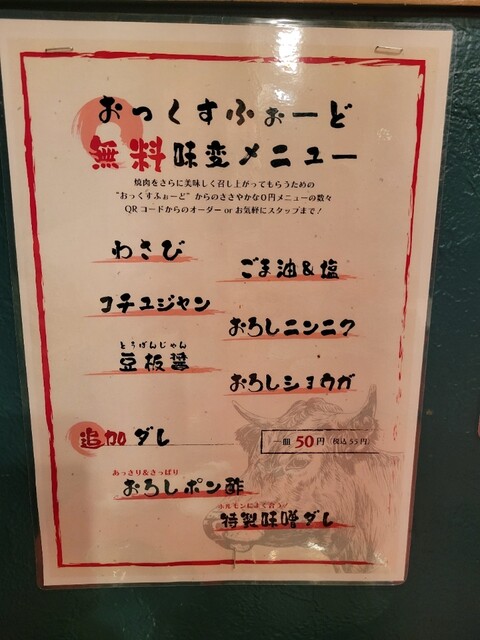 おっくすふぉーど
無料味変メニュー
焼肉をさらに美味しく召し上がってもらうための
"おっくすふぉーど"からのささやかな0円メニューの数々
QRコードからのオーダー or お気軽にスタッフまで!
わさび
ごま油&塩
コチュジャン
おろしニンニク
とうばんじゃん
豆板醤
おろしショウガ
追加ダレ
一個 50円 (税込55円)
あっさり&さっぱり
おろしポン酢
ホルモンによく合う!
特製味噌ダレ